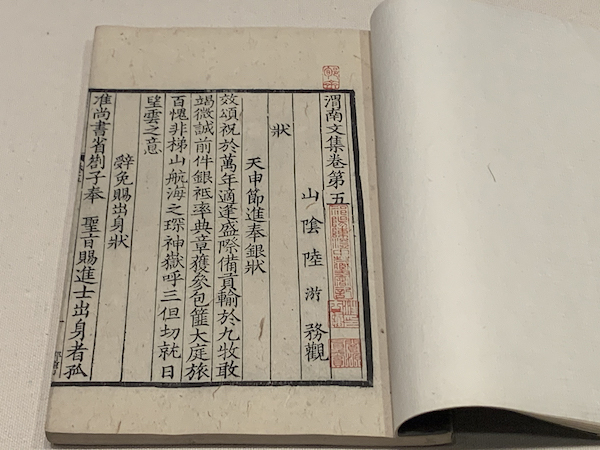 渭南文集卷第五
山陰陸游務觀
狀
天申節進奉銀狀
效頌祝於萬年適逢盛際備貢輸於九牧敢
竭微誠前件銀祗率典章獲參包篚大庭旅
百愧非梯山航海之琛神嶽呼三但切就日
望雲之意
辭免賜出身狀
准尚書省劄子奉 聖旨賜進士出身者孤